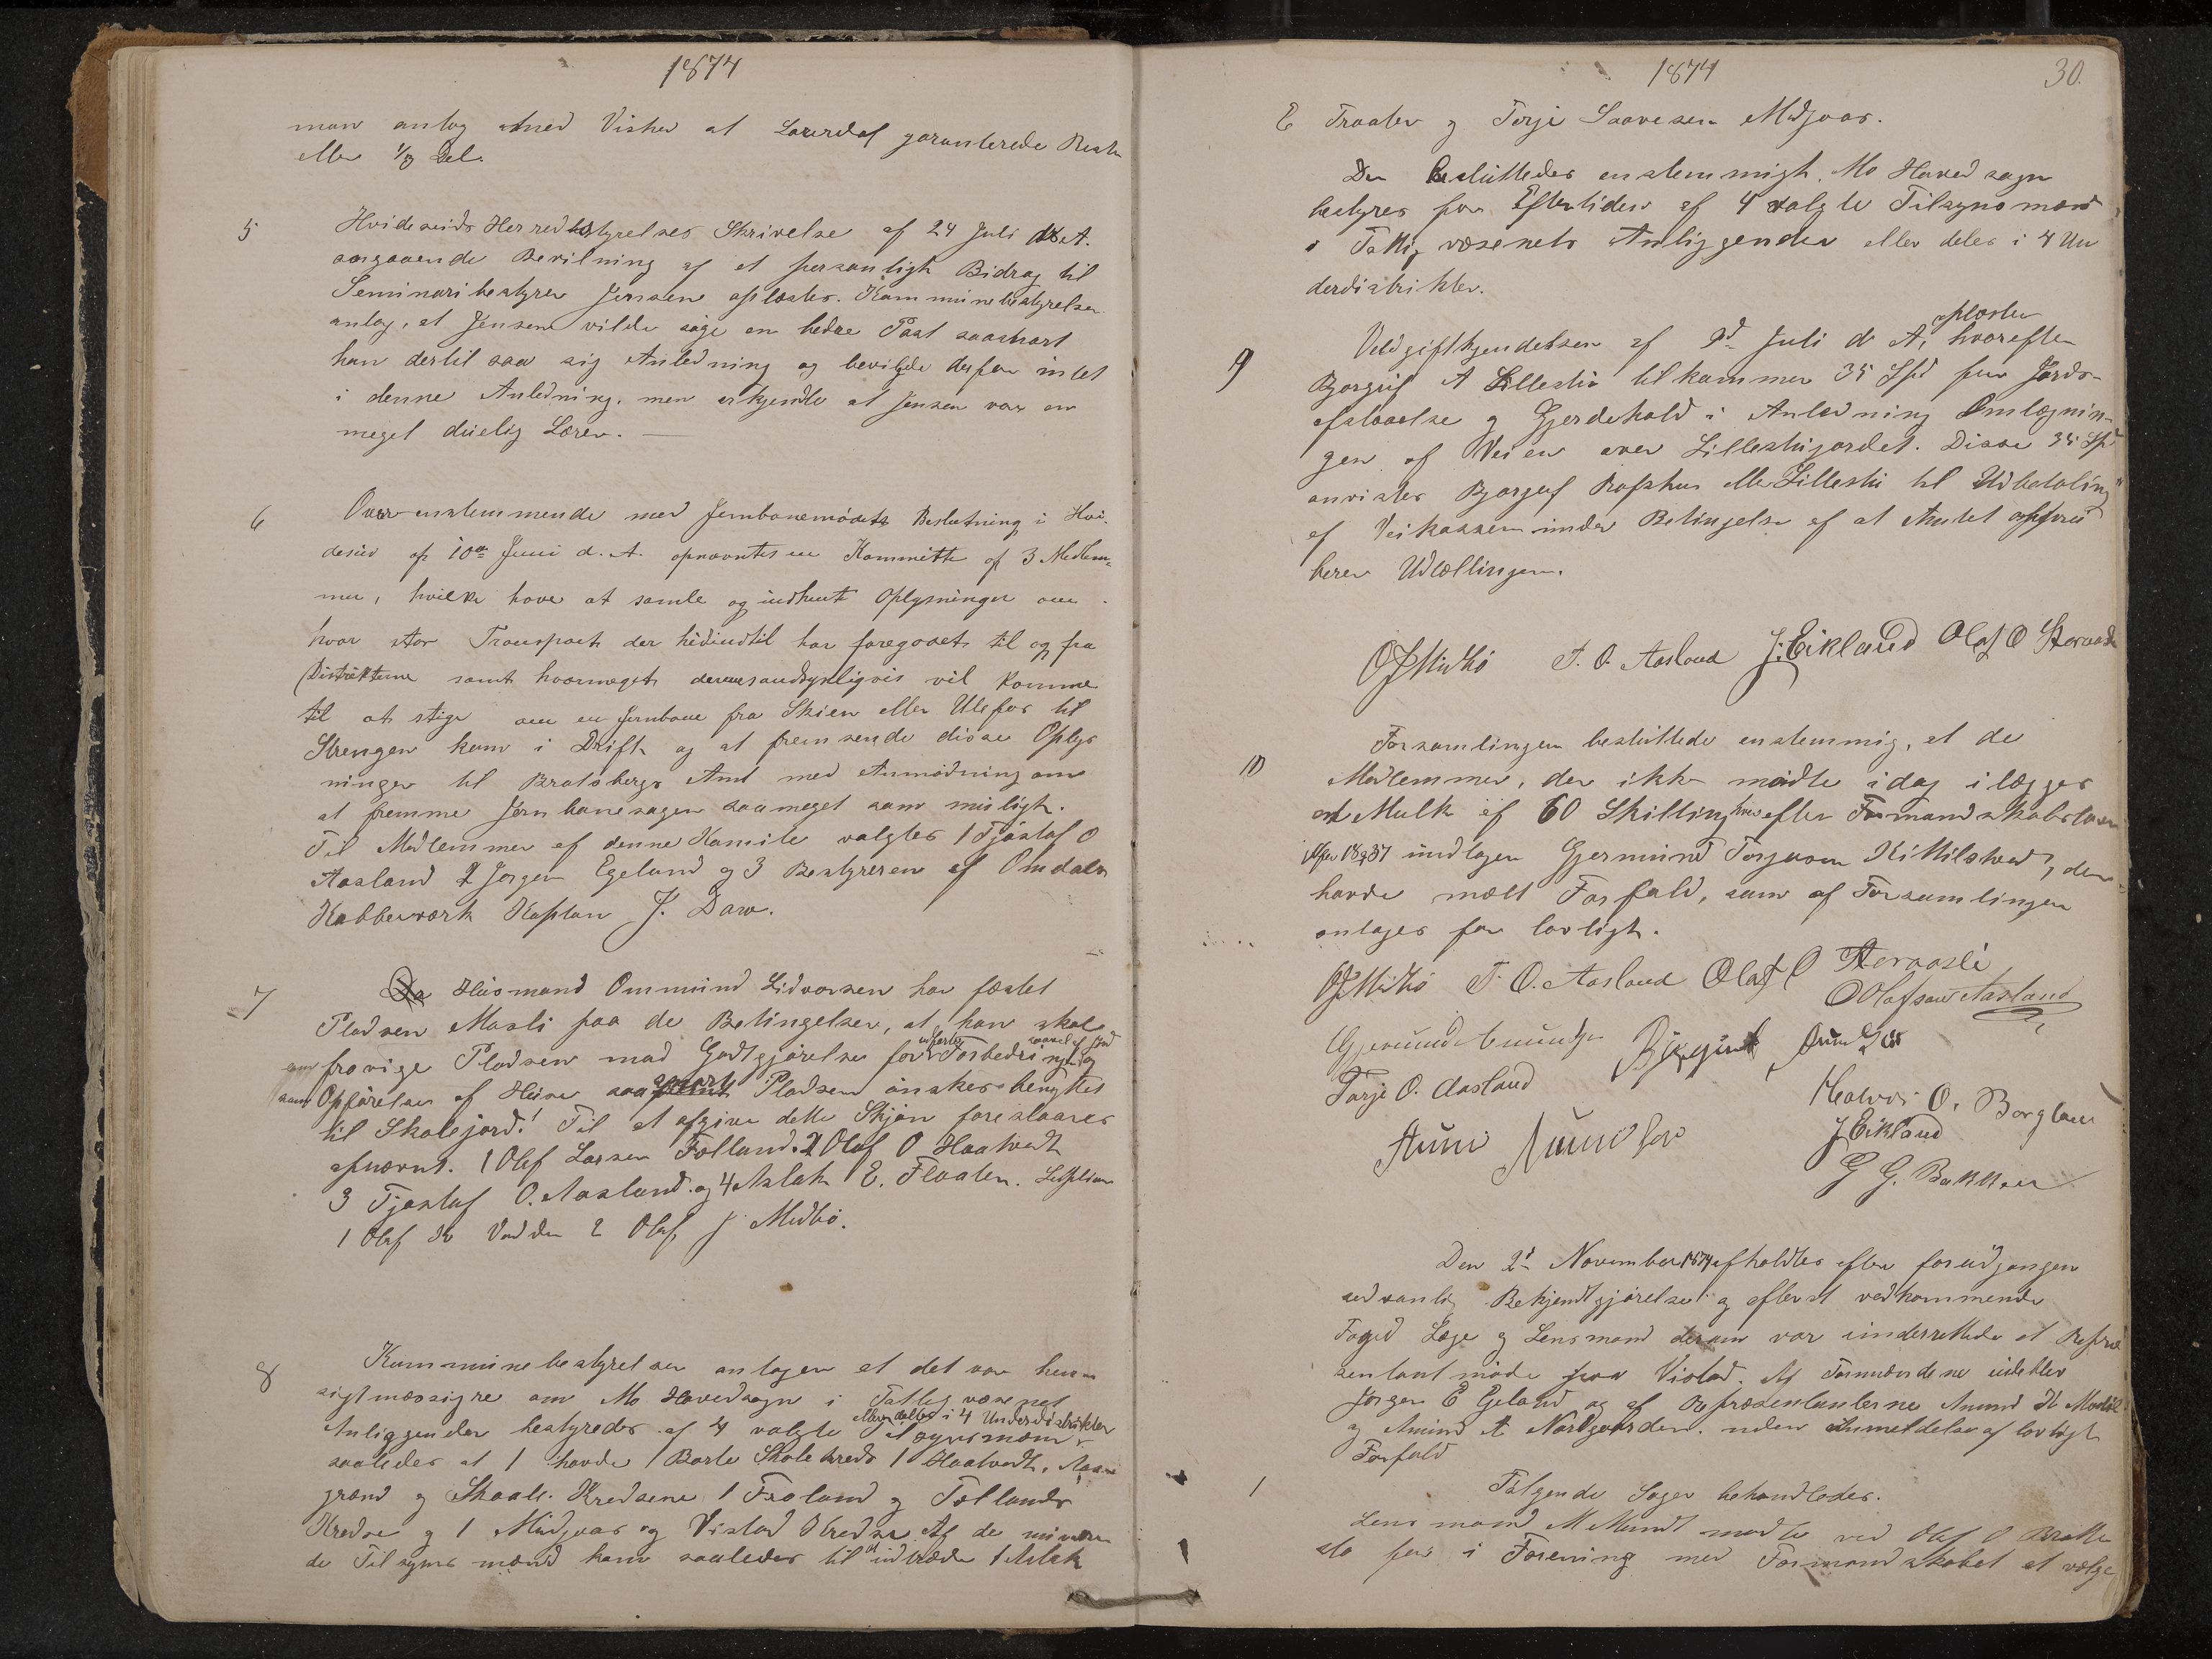 1874
man antog med Vished at Laurdal garanterede Resten
eller 1/3 Del.
5 Hvideseids Herredsbestyrelses Skrivelse af 24 Juli d. A.
angaaende Bevilning af et personligt Bidrag til
Seminaribestyrer Jensen oplæstes. Kommunebestyrelsen
antog, at Jensen vilde søge en bedre Post saasnart
han dertil saa sig Anledning og bevilgde derfor intet
i denne Anledning, men erkjendte at Jensen var en
meget duelig Lærer. —
6 Overenstemmende med Jernbanemødets Beslutning i Hvi-
deseid af 10de Juni d. A. opnævntes en Kommitte af 3 Medlem-
mer, hvilke have at samle og indhente Oplysninger om
hvor stor Transport der hidindtil har foregaaet til og fra
Distrikterne samt hvormeget denne sandsynligvis vil komme
til at stige om en Jernbane fra Skien eller Ulefos til
Strengen kom i Drift og at fremsende disse Oplys
ninger til Bratsbergs Amt med Anmodning om
at fremme Jernbanesagen saameget som muligt.
Til Medlemmer af denne Komite valgtes 1 Tjøstof O
Aasland 2 Jørgen Egeland og 3 Bestyreren af Omdals
Kobberværk Kaptan J. Daw.
7 Husmand Ommund Lidvorsen har fæstet
Pladsen Mosli paa de Betingelser, at han skal
fravige Pladsen mod Godtgjørelse for udførte Forbedring af Jord og
samt Opførelser af Huse saasnart Pladsen ønskes benyttet
til Skolejord! Til at afgive dette Skjøn foreslaaes
opnævnt. 1 Olef Larsen Folland. 2 Olaf O Haatvedt
3 Tjøstof O. Aasland og 4 Aslak E. Flaaten.
1 Olaf K Vadder 2 Olaf J Midbø.
8 Kommunebestyrelsen antager at det var hen-
sigtmæssigre om Mo Hovedsogn i Fattigvæsenets
Anliggender bestyredes af 4 valgte Tilsynsmænd eller deltes i 4 Underdistrikter
saaledes at 1 havde 1 Børte Skolekreds 1 Haatvedt,
grænd og Skaali Kredsene 1 Froland og Follands
Kredse og 1 Midgaar og Vistad Kredse. Af de
de Tilsynsmænd kom saaledes til at indtræde 1 Aslak
1874 30.
E Traaten og Torje Saavesen Midgaar.
Der besluttedes enstemmigt, Mo Hovedsogn
bestyres for Eftertiden af 4 valgte Tilsynsmænd
i Fattigvæsenets Anliggender eller deles i 4 Un
derdistrikter.
9 Voldgiftkjendelsen af 9d Juli d. A. oplæstes hvorefter
Bjørgulf A Lillestu tilkommer 35 Spd for Jords-
afstaaelse og Gjerdehold i Anledning Omlægnin-
gen af Veien over Lillestujordet. Disse 35 Spd
anvistes Bjørgulf Rofshus eller Lillestu til Udbetaling
af Veikassen under Betingelse af at Amtet appro
berer Udtællingen.
O J Midbø T. O. Aasland J. Eikland Olaf O Storaasli
10 Forsamlingen besluttede enstemmig, at de
Medlemmer, der ikke mødte idag ilægges
en Mulkt af 60 Skilling hver efter Formandskabsloven
af 1837 undtagen Gjermund Torjusen Kittilshved, der
havde mælt Forfald, som af Forsamlingen
antages for lovligt.
O J Midbø T. O. Aasland Olaf O Storaasli
O Olafsen Aasland
Torje O. Aasland Halvor O. Borglaue
J Eikland
G G. Bakken
Den 2d November 1874 afholdtes efter forudgangen
sedvanlig Bekjendtgjørelse og efterat vedkommende
Foged Læge og Lensmand derom var underrettede et Repræ
sentantmøde paa Vistad. Af Formændene udeblev
Jørgen E Egeland og af Repræsentanterne Anund K
og Amund A Nordgaarden uden Anmeldelse af lovligt
Forfald
Følgende Sager behandledes.
1 Lensmand M Mandt mødte ved Olaf O Bratte
sto for i Forening med Formandskabet at vælge